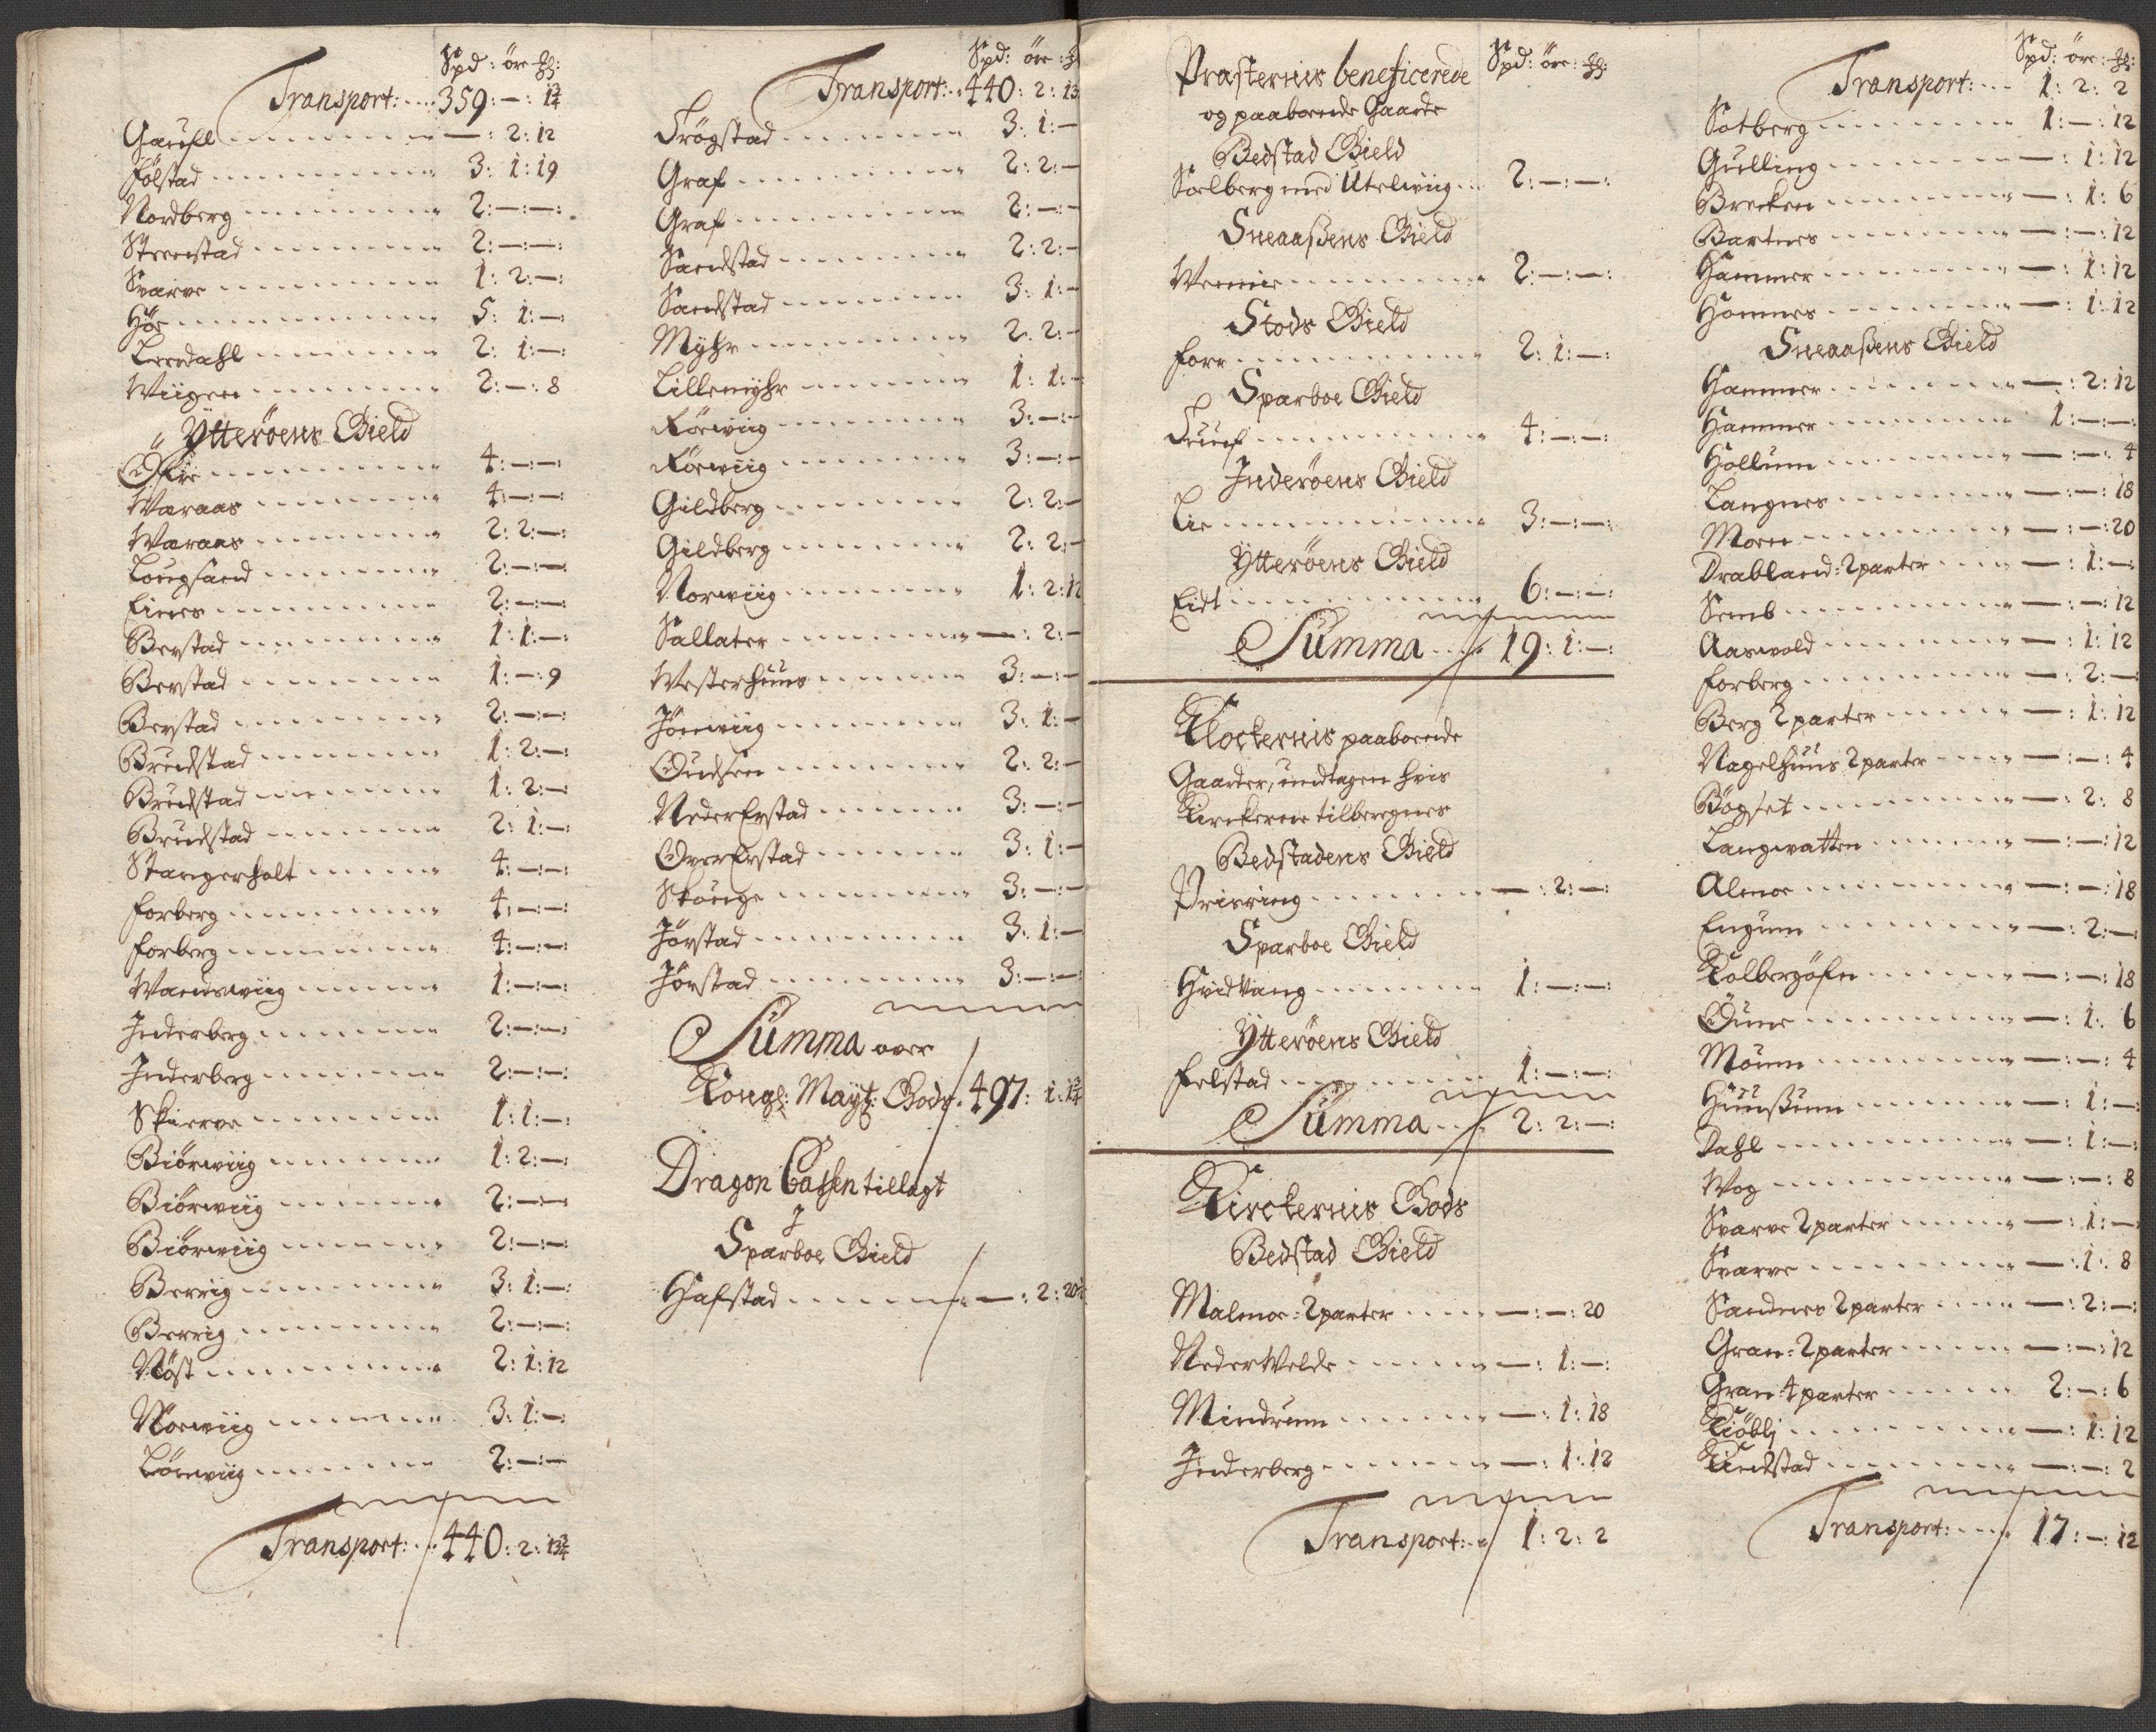 Spd: öre
Transport: 359: —: 1¾
Gaufl — : 2: 12
Fölstad 3: 1: 19
Nordberg 2: —: —:
Strenstad 2: —: —:
Svarve 1: 2: —:
Höe 5: 1: —:
Leerdahl 2: 1: —:
Wiigen 2: —: 8
Ytteröens Gield
4: —: —:
Waraas 4: —: —:
Waraas 2: 2: —:
Lougsand 2: —: —:
Eines 2: —: —:
Berstad 1: 1: —:
Berstad 1: —: 9
Berstad 2: —: —:
Brudstad 1: 2: —:
Brudstad 1: 2: —:
Brudstad 2: 1: —:
Stangerholt 4: —: —:
Forberg 4: —: —:
Forberg 4: —: —:
Wandswiig 1: —: —:
Inderberg 2: —: —:
Inderberg 2: —: —:
Skierve 1: 1: —:
Biörwiig 1: 2: —:
Biörwiig 2: —: —:
Biörwiig 2: —: —:
Berrig 3: 1: —:
Berrig 2: —: —:
Röst 2: 1: 12
Norwiig 3: 1: —:
Lörwiig 2: —: —
Transport: 440: 2: 13¾
Spd: öre
Transport: 440: 2: 13
Trögstad 3: 1: —
Graf 2: 2: —
Graf 2: —: —
Sandstad 2: 2: —
Sandstad 3: 1: —
Myhr 2: 2: —
Lillemyhr 1: 1: —
Rörwiig 3: —: —
Rörwiig 3: —: —
Gildberg 2: 2: —
Gildberg 2: 2: —
Norwiig 1: 2: 12
Sallater — : 2: —
Westerhuus 3: —: —
Jörwiig 3: 1: —
Oudsen 2: 2: —
NederErstad 3: —: —
OverErstad 3: 1: —
Skouge 3: —: —
Jörstad 3: 1: —
Jörstad 3: —: —
Summa over
Kongl: Mayt: Gods. 497: 1: 1¾
Dragon Cassen tillagt
J
Sparboe Gield
Hafstad — : 2: 20½
Præsternis beneficerede Spd: öre:
og paaboende Gaarde
Bedstad Gield
Soelberg med Utelwiig 2: —: —:
Sneaaßens Gield
Wennie 2: —: —:
Stods Gield
Forr 2: 1: —:
Sparboe Gield
Tuuf 4: —: —:
Inderöens Gield
Lie 3: —: —:
Ytteröens Gield
Eidt 6: —: —:
Summa 19: 1: —:
Klockernis paaboende
Gaarder, undtagen hvis
Kirckerne tilberegnes
Bedstadens Gield
Prisring — : 2: —:
Sparboe Gield
Hvidvang 1: —: —:
Ytteröens Gield
Felstad 1: —: —:
Summa 2: 2: —:
Kirckernis Gods
Bedstad Gield
Malmoe: 2parter — : —: 20
NederWelde — : 1: —:
Mindrum — : 1: 18
Inderberg — : 1: 12
Transport: 1: 2: 2
Spd: öre:
Transport: 1: 2: 2
Solberg 1: —: 12
Gulling — : 1: 12
Brecken — : 1: 6
Bartnes — : —: 12
Hammer — : 1: 12
Homnes — : 1: 12
Sneaaßens Gield
Hammer — : 2: 12
Hammer 1: —: —:
Hollum — : —: 4
Langnes — : —: 18
Moen — : —: 20
Drabland: 2parter — : 1: —:
Semb — : —: 12
Aaswold — : 1: 12
Forberg — : 2: —
Berg 2parter — : 1: 12
Nagelhuus 2parter — : —: 4
Bögset — : 2: 8
Langvatten — : —: 12
Almoe — : —: 18
Engum — : 2: —
Kolbergöfen — : —: 18
Oune — : 1: 6
Moum — : —: 4
Huußum — : 1: —:
Dahl — : 1: —:
Wog — : —: 8
Svarve 2parter — : 1: —
Svarve — : 1: 8
Sandnes 2parter — : 2: —:
Gran: 2parter — : —: 12
Gran 4parter 2: —: 6
Kiöblj — : 1: 12
Kindstad — : —: 2
Transport: 17: —: 12